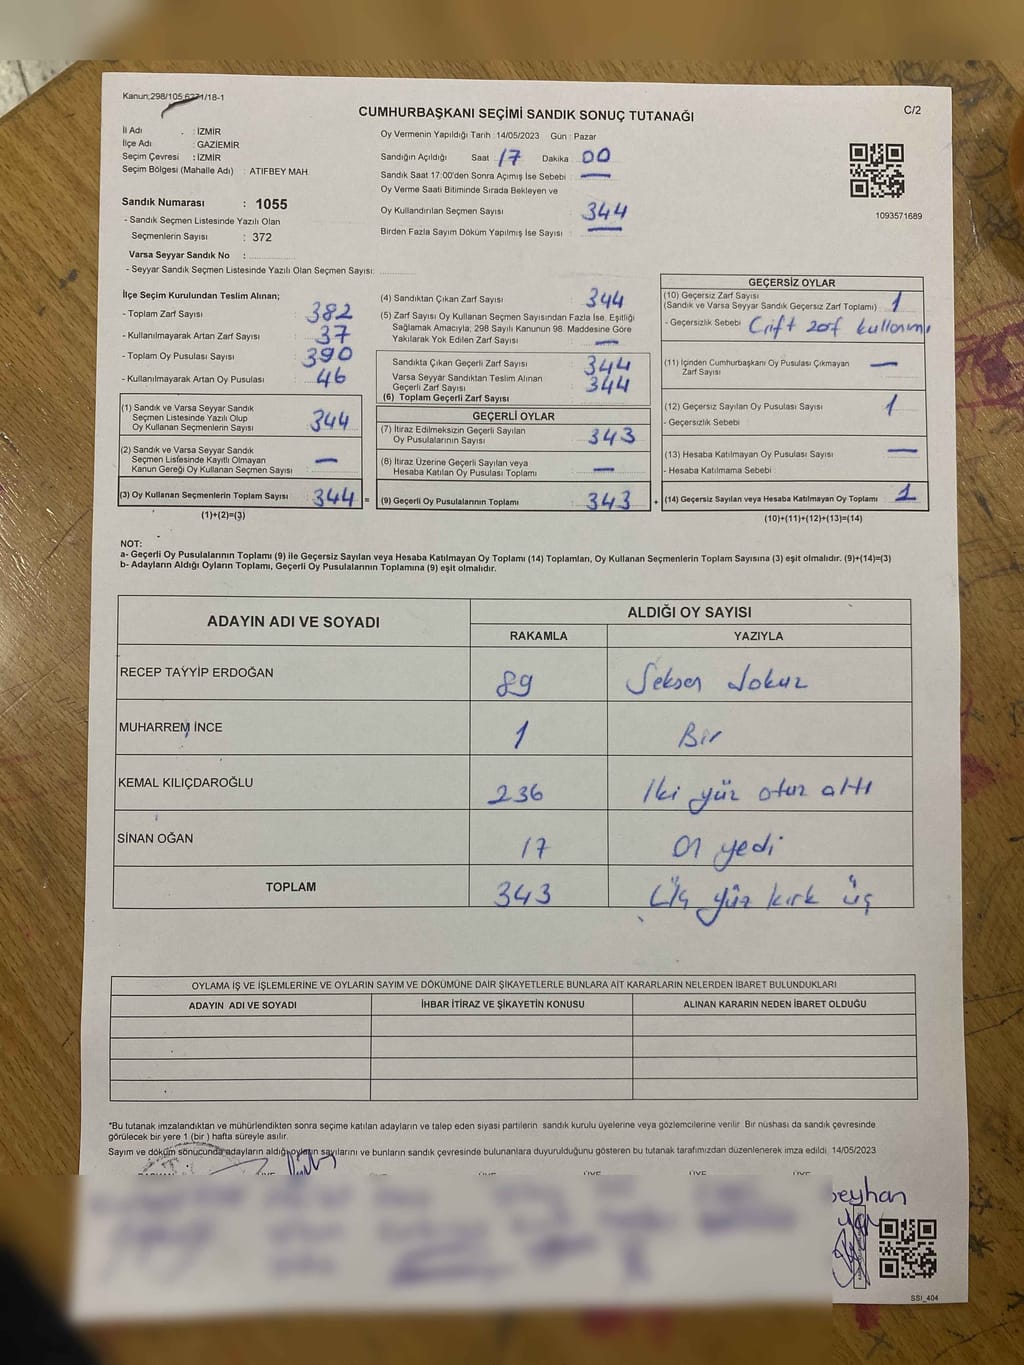 Kanun:298/105 6271/18-1
CUMHURBAŞKANI SEÇİMİ SANDIK SONUÇ TUTANAĞI
C/2
İl Adı : İZMİR
İlçe Adı : GAZİEMİR
Seçim Çevresi : İZMİR
Seçim Bölgesi (Mahalle Adı) : ATIFBEY MAH.
Sandık Numarası : 1055
- Sandık Seçmen Listesinde Yazılı Olan
Seçmenlerin Sayısı : 372
Varsa Seyyar Sandık No :
- Seyyar Sandık Seçmen Listesinde Yazılı Olan Seçmen Sayısı:
Oy Vermenin Yapıldığı Tarih :14/05/2023 Gün : Pazar
Sandığın Açıldığı Saat 17 Dakika 00
Sandık Saat 17:00'den Sonra Açımış İse Sebebi : —
Oy Verme Saati Bitiminde Sırada Bekleyen ve
Oy Kullandırılan Seçmen Sayısı : 344
Birden Fazla Sayım Döküm Yapılmış İse Sayısı : —
1093571689
İlçe Seçim Kurulundan Teslim Alınan;
- Toplam Zarf Sayısı : 382
- Kullanılmayarak Artan Zarf Sayısı : 37
- Toplam Oy Pusulası Sayısı : 390
- Kullanılmayarak Artan Oy Pusulası : 46
(1) Sandık ve Varsa Seyyar Sandık
Seçmen Listesinde Yazılı Olup
Oy Kullanan Seçmenlerin Sayısı : 344
(2) Sandık ve Varsa Seyyar Sandık
Seçmen Listesinde Kayıtlı Olmayan
Kanun Gereği Oy Kullanan Seçmen Sayısı : —
(3) Oy Kullanan Seçmenlerin Toplam Sayısı : 344 =
(1)+(2)=(3)
(4) Sandıktan Çıkan Zarf Sayısı : 344
(5) Zarf Sayısı Oy Kullanan Seçmen Sayısından Fazla İse, Eşitliği
Sağlamak Amacıyla; 298 Sayılı Kanunun 98. Maddesine Göre
Yakılarak Yok Edilen Zarf Sayısı : —
Sandıkta Çıkan Geçerli Zarf Sayısı : 344
Varsa Seyyar Sandıktan Teslim Alınan
Geçerli Zarf Sayısı : 344
(6) Toplam Geçerli Zarf Sayısı
GEÇERLİ OYLAR
(7) İtiraz Edilmeksizin Geçerli Sayılan
Oy Pusulalarının Sayısı : 343
(8) İtiraz Üzerine Geçerli Sayılan veya
Hesaba Katılan Oy Pusulası Toplamı : —
(9) Geçerli Oy Pusulalarının Toplamı : 343 +
GEÇERSİZ OYLAR
(10) Geçersiz Zarf Sayısı
(Sandık ve Varsa Seyyar Sandık Geçersiz Zarf Toplamı) : 1
- Geçersizlik Sebebi : Çift zarf kullanımı
(11) İçinden Cumhurbaşkanı Oy Pusulası Çıkmayan
Zarf Sayısı : —
(12) Geçersiz Sayılan Oy Pusulası Sayısı : 1
- Geçersizlik Sebebi :
(13) Hesaba Katılmayan Oy Pusulası Sayısı : —
- Hesaba Katılmama Sebebi :
(14) Geçersiz Sayılan veya Hesaba Katılmayan Oy Toplamı : 1
(10)+(11)+(12)+(13)=(14)
NOT:
a- Geçerli Oy Pusulalarının Toplamı (9) ile Geçersiz Sayılan veya Hesaba Katılmayan Oy Toplamı (14) Toplamları, Oy Kullanan Seçmenlerin Toplam Sayısına (3) eşit olmalıdır. (9)+(14)=(3)
b- Adayların Aldığı Oyların Toplamı, Geçerli Oy Pusulalarının Toplamına (9) eşit olmalıdır.
ADAYIN ADI VE SOYADI
ALDIĞI OY SAYISI
RAKAMLA YAZIYLA
RECEP TAYYİP ERDOĞAN 89 Seksen dokuz
MUHARREM İNCE 1 Bir
KEMAL KILIÇDAROĞLU 236 İki yüz otuz altı
SİNAN OĞAN 17 On yedi
TOPLAM 343 Üç yüz kırk üç
OYLAMA İŞ VE İŞLEMLERİNE VE OYLARIN SAYIM VE DÖKÜMÜNE DAİR ŞİKAYETLERLE BUNLARA AİT KARARLARIN NELERDEN İBARET BULUNDUKLARI
ADAYIN ADI VE SOYADI İHBAR İTİRAZ VE ŞİKAYETİN KONUSU ALINAN KARARIN NEDEN İBARET OLDUĞU
*Bu tutanak imzalandıktan ve mühürlendikten sonra seçime katılan adayların ve talep eden siyasi partilerin sandık kurulu üyelerine veya gözlemcilerine verilir. Bir nüshası da sandık çevresinde
görülecek bir yere 1 (bir) hafta süreyle asılır.
Sayım ve döküm sonucunda adayların aldığı oyların sayılarını ve bunların sandık çevresinde bulunanlara duyurulduğunu gösteren bu tutanak tarafımızdan düzenlenerek imza edildi. 14/05/2023
beyhan
SSI_404